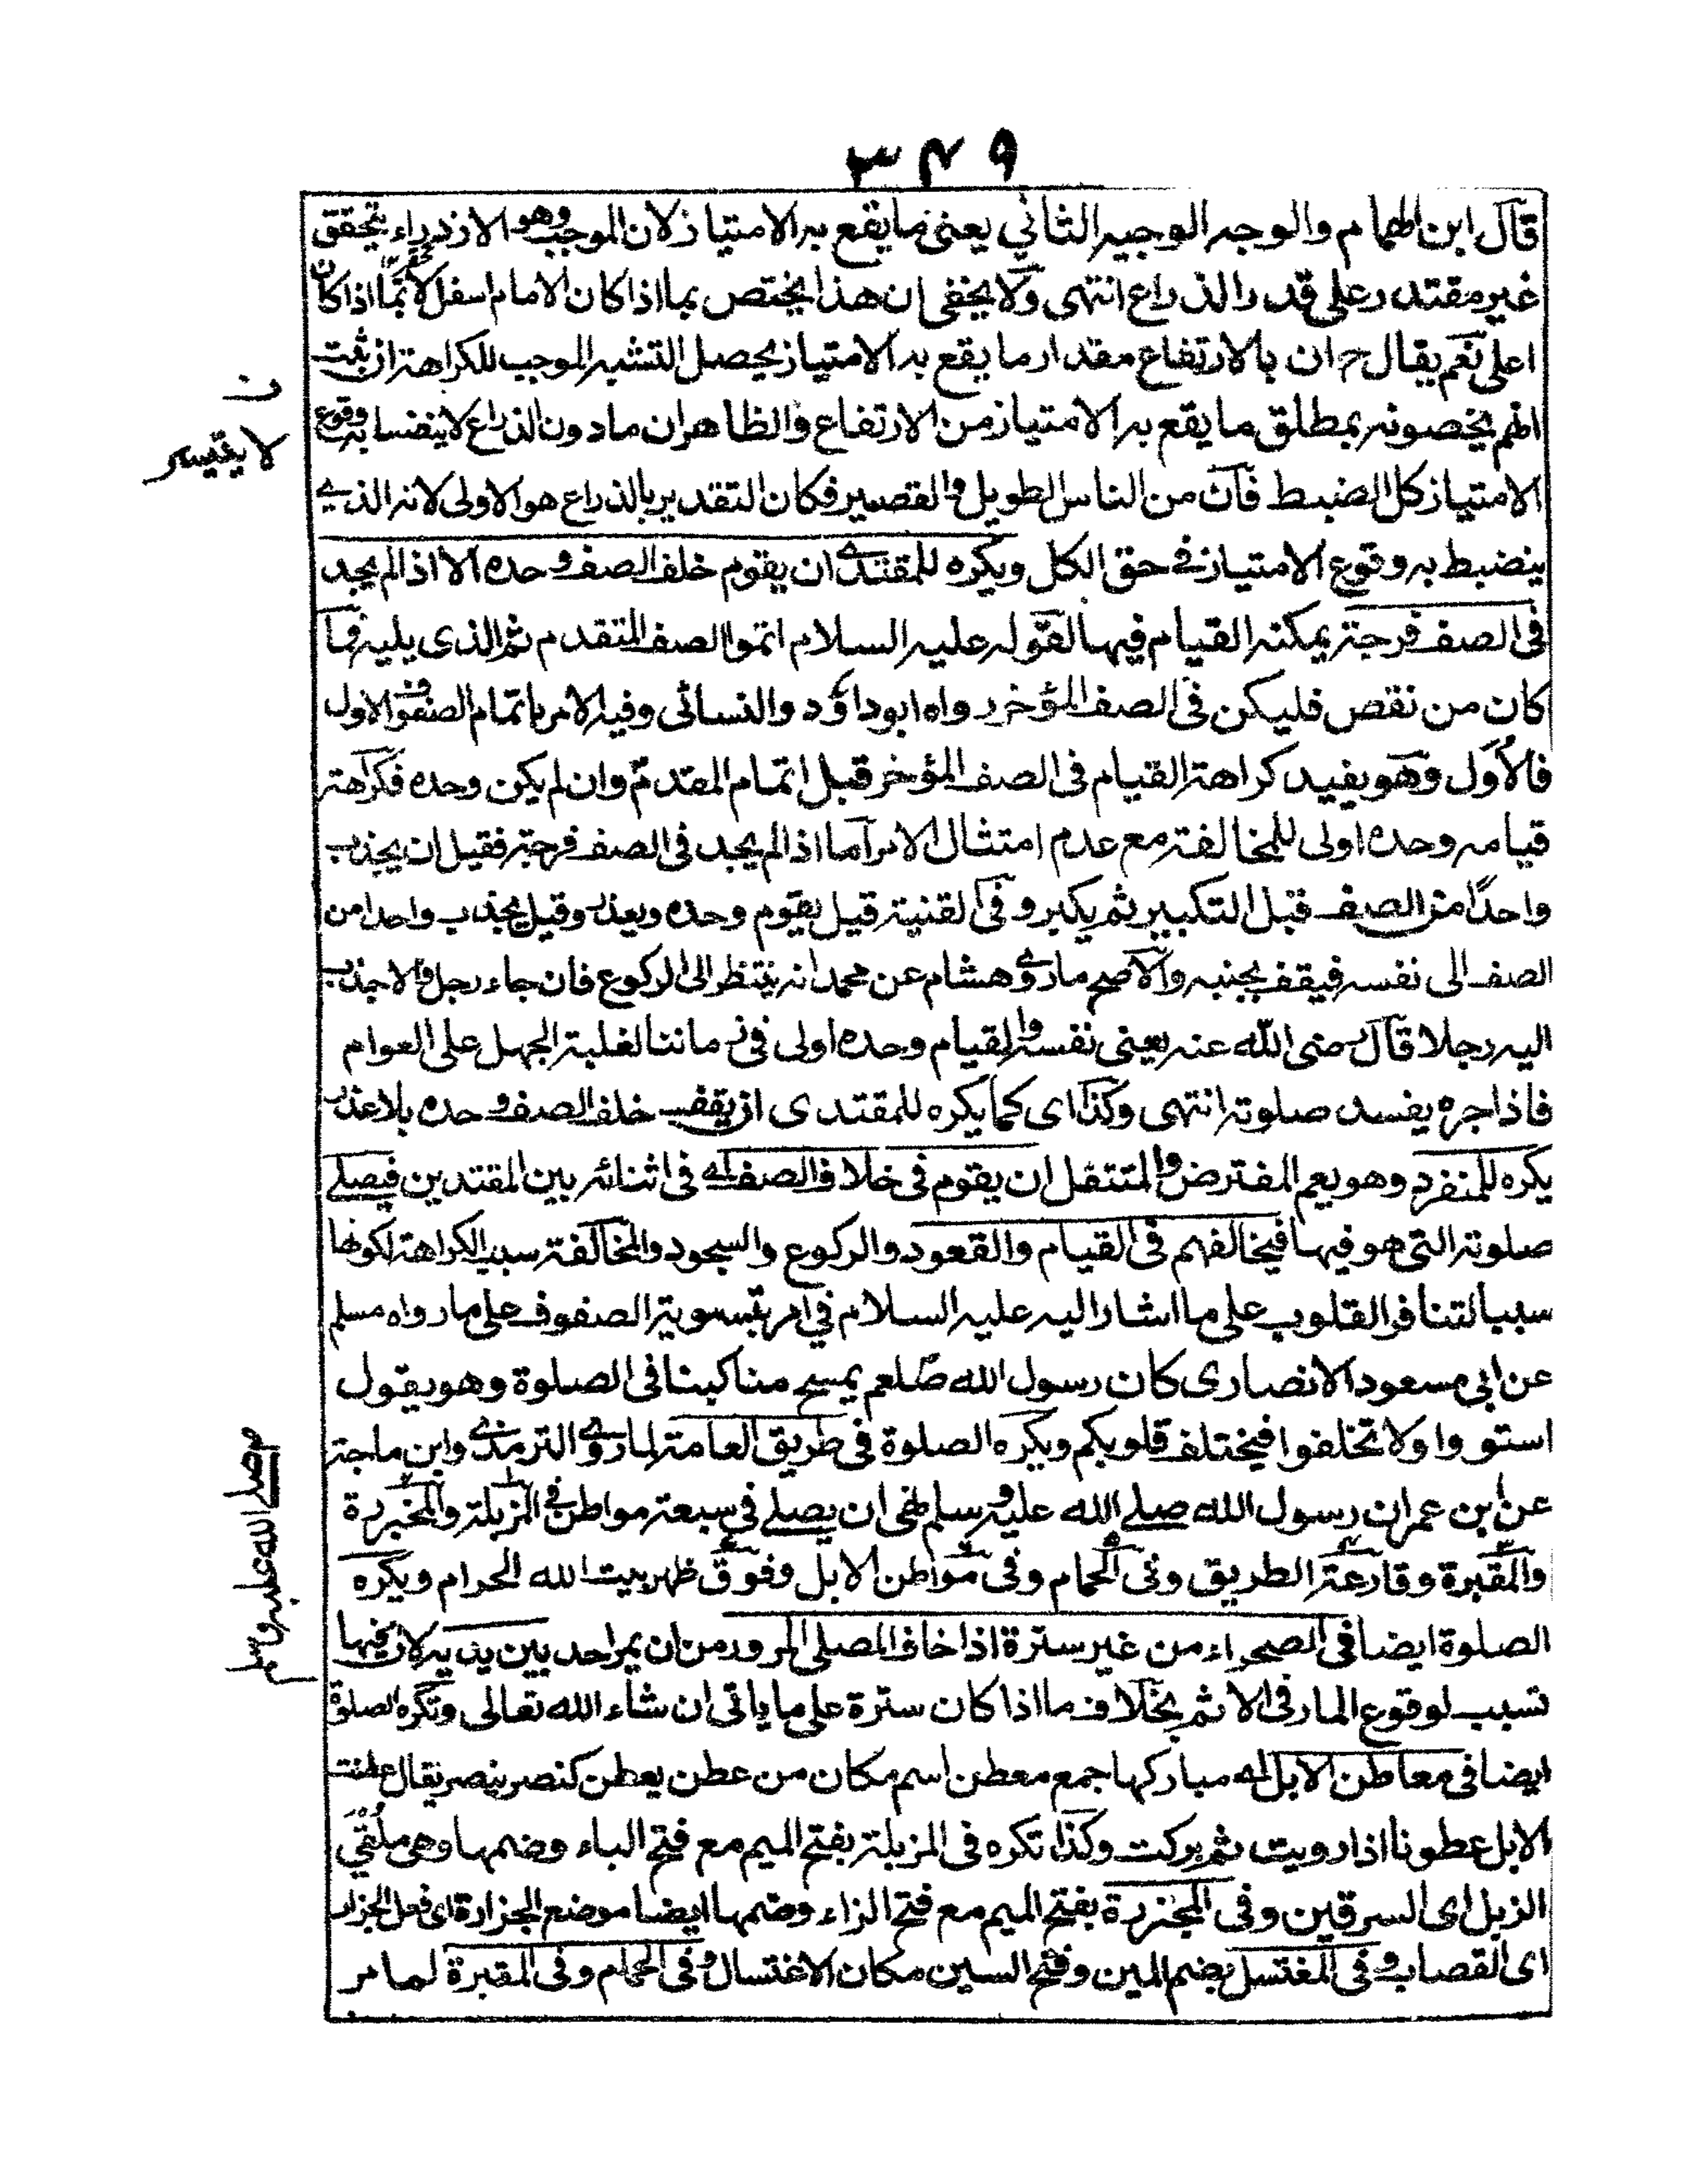 ٣٤٩
قال ابن الهمام والوجه الوجيه الثاني يعنى ما يقع به الامتياز لان الموجب وهو الازدراء يتحقق
غير مقتدر على قدر الذراع انتهى ولا يخفى ان هذا يختص بما اذا كان الامام اسفل لا بما اذا كان
اعلى نعم يقال ح ان بالارتفاع مقدار ما يقع به الامتياز يحصل التشبه الموجب للكراهة ان ثبت
انهم يخصونه بمطلق ما يقع به الامتياز من الارتفاع والظاهر ان ما دون الذراع لا ينضبط به وقوع
الامتياز كل الضبط فان من الناس الطويل والقصير فكان التقدير بالذراع هو الاولى لانه الذے
ينضبط به وقوع الامتياز فے حق الكل ويكره للمقتدے ان يقوم خلف الصف وحده الا اذا لم يجد
فى الصف فرجة يمكنه القيام فيها لقوله عليه السلام اتموا الصف المتقدم ثم الذى يليه فما
كان من نقص فليكن فى الصف المؤخر رواه ابو داؤد والنسائى وفيه الامر باتمام الصفوف الاول
فالاول وهو يفيد كراهة القيام فى الصف المؤخر قبل اتمام المقدم وان لم يكن وحده فكراهة
قيامه وحده اولى للمخالفة مع عدم امتثال الامر اما اذا لم يجد فى الصف فرجة فقيل ان يجذب
واحدًا من الصف قبل التكبير ثم يكبر وفى القنية قيل يقوم وحده ويعذر وقيل يجذب واحدا من
الصف الى نفسه فيقف بجنبه والاصح ما روے هشام عن محمد انه ينتظر الى الركوع فان جاء رجل والا جذب
اليه رجلا قال رضى الله عنه يعنى نفسه والقيام وحده اولى فى زماننا لغلبة الجهل على العوام
فاذا جره يفسد صلوته انتهى وكذا اى كما يكره للمقتدى ان يقف خلف الصف وحده بلا عذر
يكره للمنفرد وهو يعم المفترض والمتنفل ان يقوم فى خلال الصف اے فى اثنائه بين المقتدين فيصلے
صلوته التى هو فيها فيخالفهم فى القيام والقعود والركوع والسجود والمخالفة سبب الكراهة لكونها
سببا لتنافر القلوب على ما اشار اليه عليه السلام فى امر تسوية الصفوف على ما رواه مسلم
عن ابى مسعود الانصارى كان رسول الله صلعم يمسح مناكبنا فى الصلوة وهو يقول
استووا ولا تختلفوا فيختلف قلوبكم ويكره الصلوة فى طريق العامة لما روے الترمذے وابن ماجة
عن ابن عمر ان رسول الله صلے الله عليه وسلم نهى ان يصلے فى سبعة مواطن فے المزبلة والمجزرة
والمقبرة وقارعة الطريق وفى الحمام وفى مواطن الابل وفوق ظهر بيت الله الحرام ويكره
الصلوة ايضا فى الصحراء من غير سترة اذا خاف المصلى المرور من ان يمر احد بين يديه لان فيها
تسبب لوقوع المار فى الاثم بخلاف ما اذا كان سترة على ما ياتى ان شاء الله تعالى وتكره الصلوة
ايضا فى معاطن الابل اے مباركها جمع معطن اسم مكان من عطن يعطن كنصر ينصر يقال عطنت
الابل عطونا اذا رويت ثم بركت وكذا تكره فى المزبلة بفتح الميم مع فتح الباء وضمها وهى ملقى
الزبل اى السرقين وفى المجزرة بفتح الميم مع فتح الزاء وضمها ايضا موضع الجزارة اى فعل الجزار
اى القصاب وفى المغتسل بضم المين وفتح السين مكان الاغتسال وفى الحمام وفى المقبرة لما مر
ن
لا يتيسر
صلے الله عليه وسلم